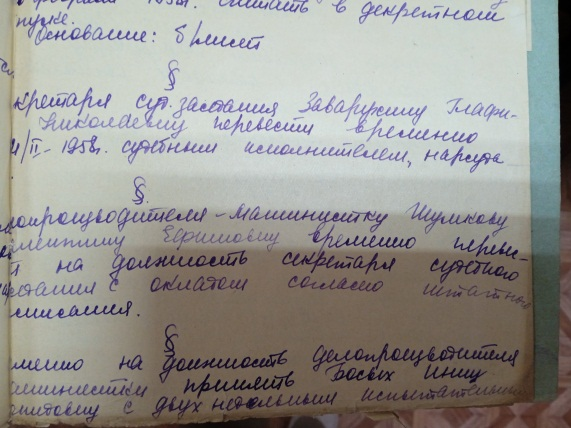 считать в декретном
Основание: б/лист
§
кретаря суд. заседания Заваружину Глафи-
Николаевну перевести временно
4/II-1958г. судебным исполнителем, нарсуда
§.
лопроизводителя-машинистку Шумкову
Ефимовну временно переве-
на должность секретаря судебного
с окладом согласно штатных
списания.
§
менно на должность делопроизводителя
принять Босых Нину
с двух недельным испытательным